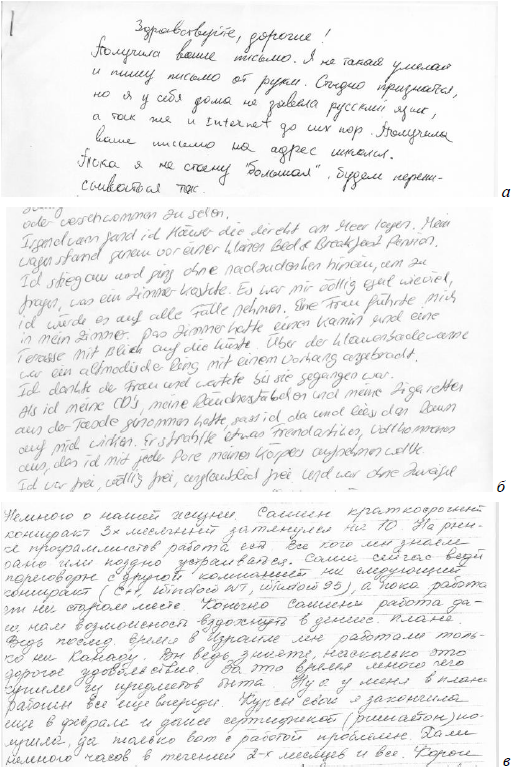 Здравствуйте, дорогие!
Получила ваше письмо. Я не такая умелая
и пишу письмо от руки. Стыдно признаться,
но я у себя дома не завела русский язык,
а так же и Internet до сих пор. Получила
ваше письмо на адрес школы.
Пока я не стану "большая", будем перепи-
сываться так.
а
oder verschwommen zu sehen.
Irgendwann fand ich Häuser die direkt am Meer lagen. Mein
Wagen stand genau vor einer kleinen Bed & Breakfast Pension.
Ich stieg aus und ging ohne nachzudenken hinein, um zu
fragen, was ein Zimmer kostete. Es war mir völlig egal wieviel,
ich würde es auf alle Fälle nehmen. Eine Frau führte mich
in mein Zimmer. Das Zimmer hatte einen Kamin und eine
Terasse mit Blick auf die Küste. Über der Klauenbadewanne
war ein altmodischer Ring mit einem Vorhang angebracht.
Ich dankte der Frau und wartete bis sie gegangen war.
Als ich meine CD's, meine Räucherstäbchen und meine Zigaretten
aus der Tasche genommen hatte, sass ich da und liess den Raum
auf mich wirken. Er strahlte etwas Fremdartiges, Vollkommenes
aus, das ich mit jeder Pore meines Körpers aufnehmen wollte.
Ich war frei, völlig frei, unglaublich frei und war ohne Zweifel
б
Немного о нашей жизни. Сашин краткосрочный
контракт 3х месячный затянулся на 10. На рын-
ке программистов работа есть. Все кого мы знаем
рано или поздно устраиваются. Саша сейчас ведёт
переговоры с другой компанией на следующий
контракт (C++, Windows NT, Windows 95), а пока работа
на старом месте. Конечно Сашина работа да-
ла, нам возможность вздохнуть в денежн. плане.
Ведь послед. время в Израиле мы работали толь-
ко на Канаду. Вы ведь, знаете, насколько это
дорогое удовольствие. За это время много чего
купили из предметов быта. Ну а у меня в плане
работы все ещё впереди. Курсы свои я закончила
ещё в феврале и даже сертификат по-
лучила, да только вот с работой проблемы. Дали
немного часов в течении 2-х месяцев и все.
в